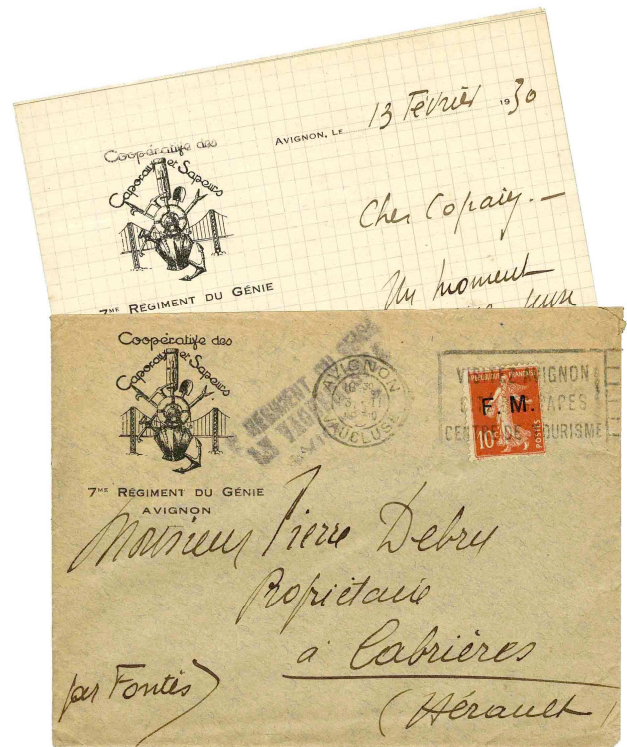 Coopérative des
Caporaux et Sapeurs
7ME RÉGIMENT DU GÉNIE
AVIGNON, LE 13 Février 1930
Cher Copain.—
Un moment
Coopérative des
Caporaux et Sapeurs
7ME RÉGIMENT DU GÉNIE
AVIGNON
RÉGIMENT DU GÉNIE
AVIGNON
VAUCLUSE
AVIGNON
PAPES
CENTRE DE TOURISME
F. M.
10c
POSTES
Monsieur Pierre Debru
Propriétaire
à Cabrières
(Hérault)
par Fontès)